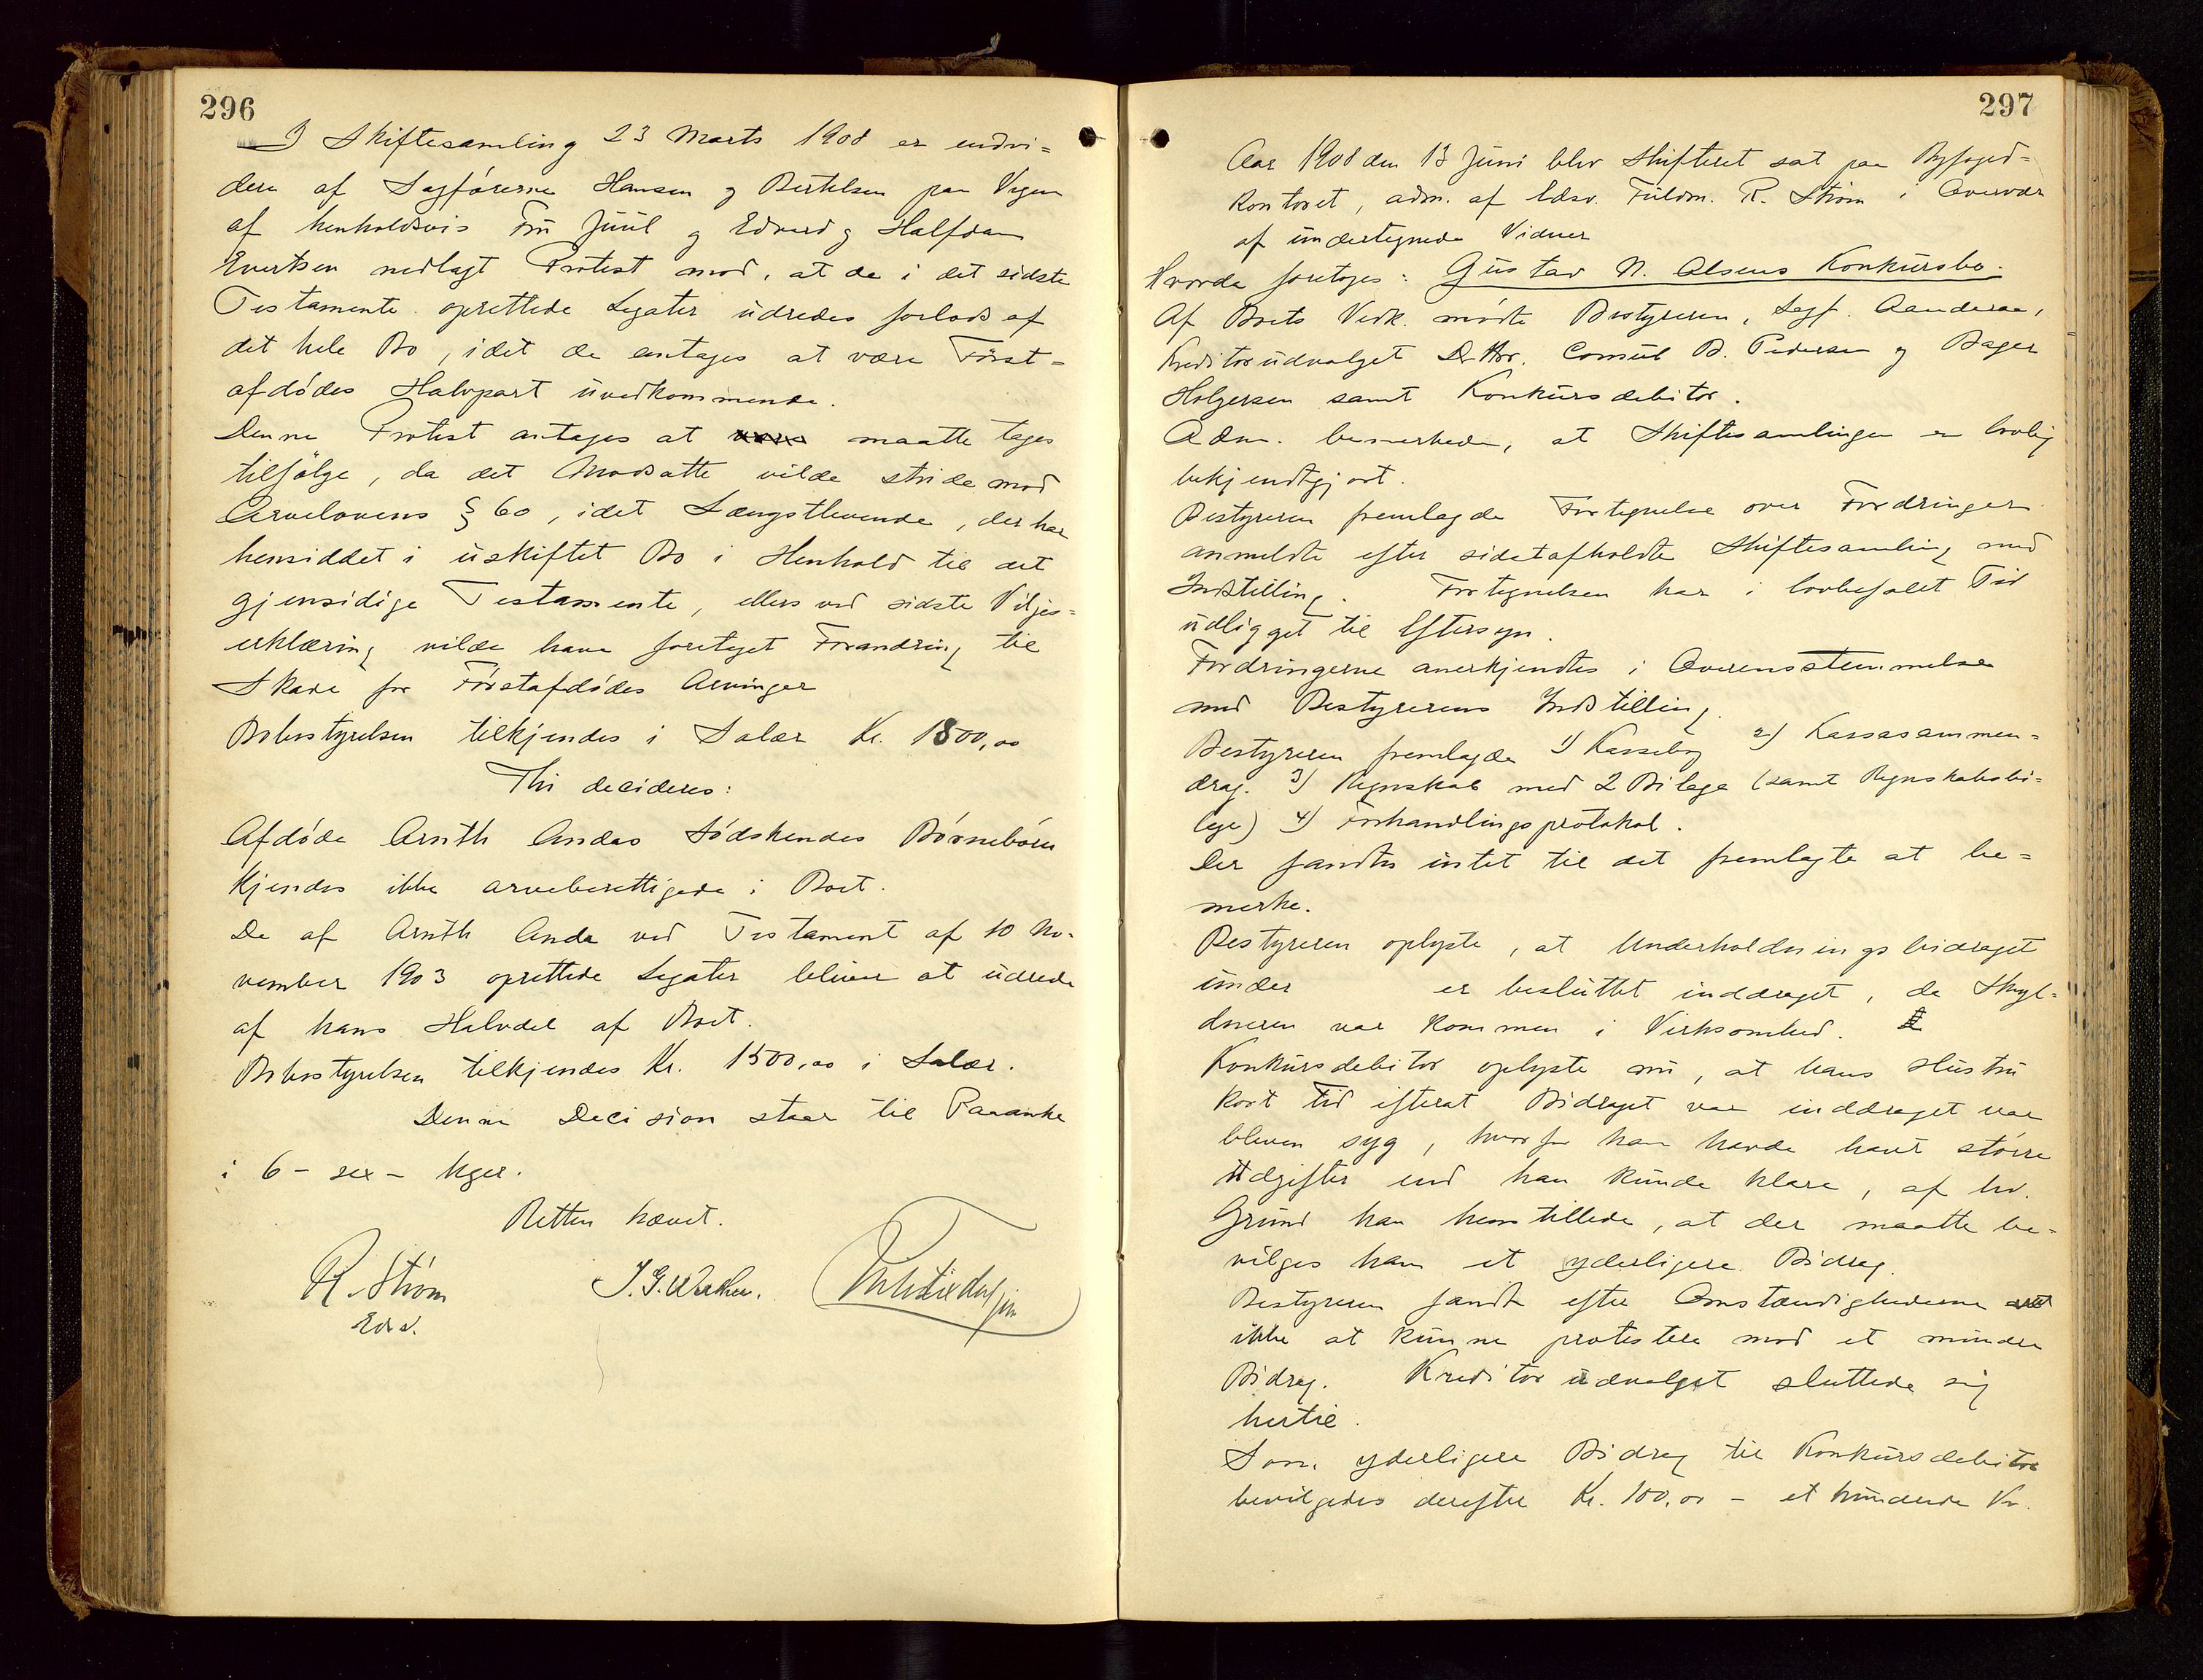 296
I Skiftesamling 23 Marts 1908 er endvi=
dere af Sagførerne Hansen og Bertelsen paa Vegne
af henholdsvis Fru Juul og Edvard og Halfdan
Evertsen nedlagt Protest mod, at de i det sidste
Testamente oprettede Legater udredes forlods af
det hele Bo, idet de antages at være Først=
afdødes Halvpart uvedkommende.
Denne Protest antages at maatte tages
tilfølge, da det Modsatte vilde stride mod
Arvelovens § 60, idet Længstlevende, der har
hensiddet i uskiftet Bo i Henhold til det
gjensidige Testamente, ellers ved sidste Viljes=
erklæring vilde have foretaget Forandring til
Skade for Førstafdødes Arvinger
Bobestyrelsen tilkjendes i Salær Kr. 1500,00
Thi decideres:
Afdøde Arnth Andas Sødskendes Børnebørn
kjendes ikke arveberettigede i Boet.
De af Arnth Anda ved Testament af 10 No-
vember 1903 oprettede Legater bliver at udrede
af hans Halvdel af Boet.
Bobestyrelsen tilkjendes Kr. 1500,00 i Salær.
Denne Decision staar til Paaanke
i 6 - sex - Uger.
Retten hævet.
R. Strøm
Edsv.
297
Aar 1908 den 13 Juni blev Skifteret sat paa Byfoged=
kontoret, adm. af edsv. Fuldm. R. Strøm i Overvær
af undertegnede Vidner
Hvorda foretoges: Gustav N. Olsens Konkursbo.
Af Boets Vedk. mødte Bestyreren, Sagf. Aanderaa,
Kreditorudvalget D'Hrr. Consul B. Pedersen og Bager
Holgersen samt Konkursdebitor.
Adm. bemerkede, at Skiftesamlingen er lovlig
bekjendtgjort.
Bestyreren fremlagde Fortegnelse over Fordringer
anmeldte efter sidstafholdte Skiftesamling med
Indstilling. Fortegnelsen har i lovbefalet Tid
udligget til Eftersyn.
Fordringerne anerkjendtes i Overensstemmelse
med Bestyrerens Indstilling.
Bestyreren fremlagde 1) Kassebog 2) Kassasammen=
drag. 3) Regnskab med 2 Bilage (samt Regnskabsbi=
lage) 4) Forhandlingsprotokol.
Der fandtes intet til det fremlagte at be=
merke.
Bestyreren oplyste, at Underholdningsbidraget
under er besluttet inddraget, da Skyl=
dneren var kommen i Virksomhed.
Konkursdebitor oplyste nu, at hans Hustru
kort Tid efterat Bidraget var inddraget var
bleven syg, hvorfor han havde havt større
Udgifter end han kunde klare, af hv.
Grund han henstillede, at der maatte be-
vilges ham et yderligere Bidrag.
Bestyreren fandt efter Omstændighederne
ikke at kunne protestere mod et mindre
Bidrag. Kreditorudvalget sluttede sig
hertil.
Som yderligere Bidrag til Konkursdebitor
bevilgedes derefter Kr. 100,00 - et hundrede Kr.